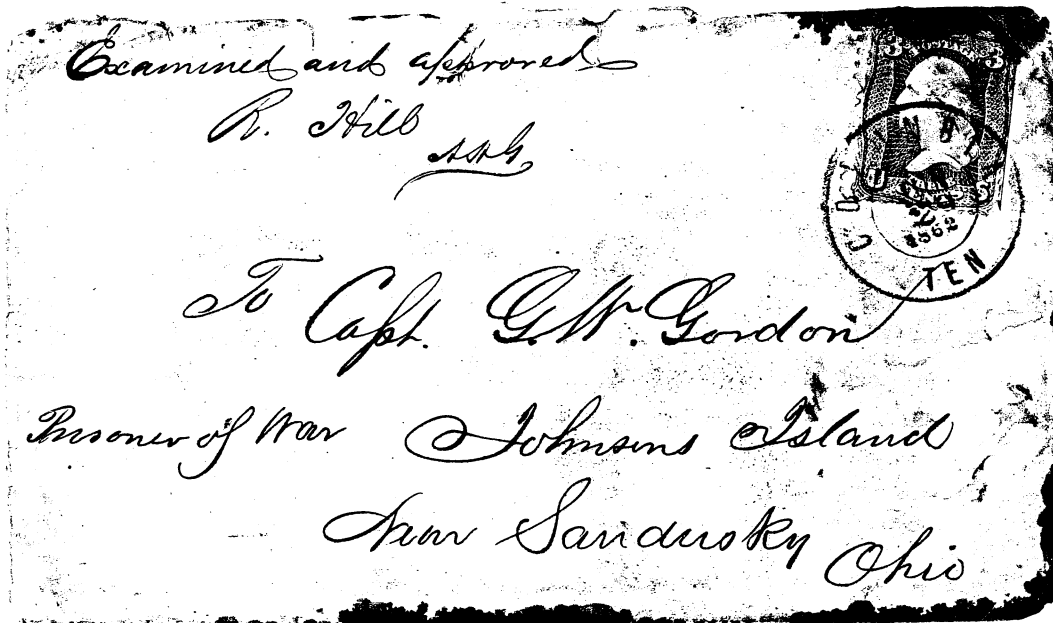 Examined and approved
R. Hill
AAG
3 3
U S
COLUMBIA
TEN
1862
To Capt. G. W. Gordon
Prisoner of War Johnsons Island
Near Sandusky
Ohio